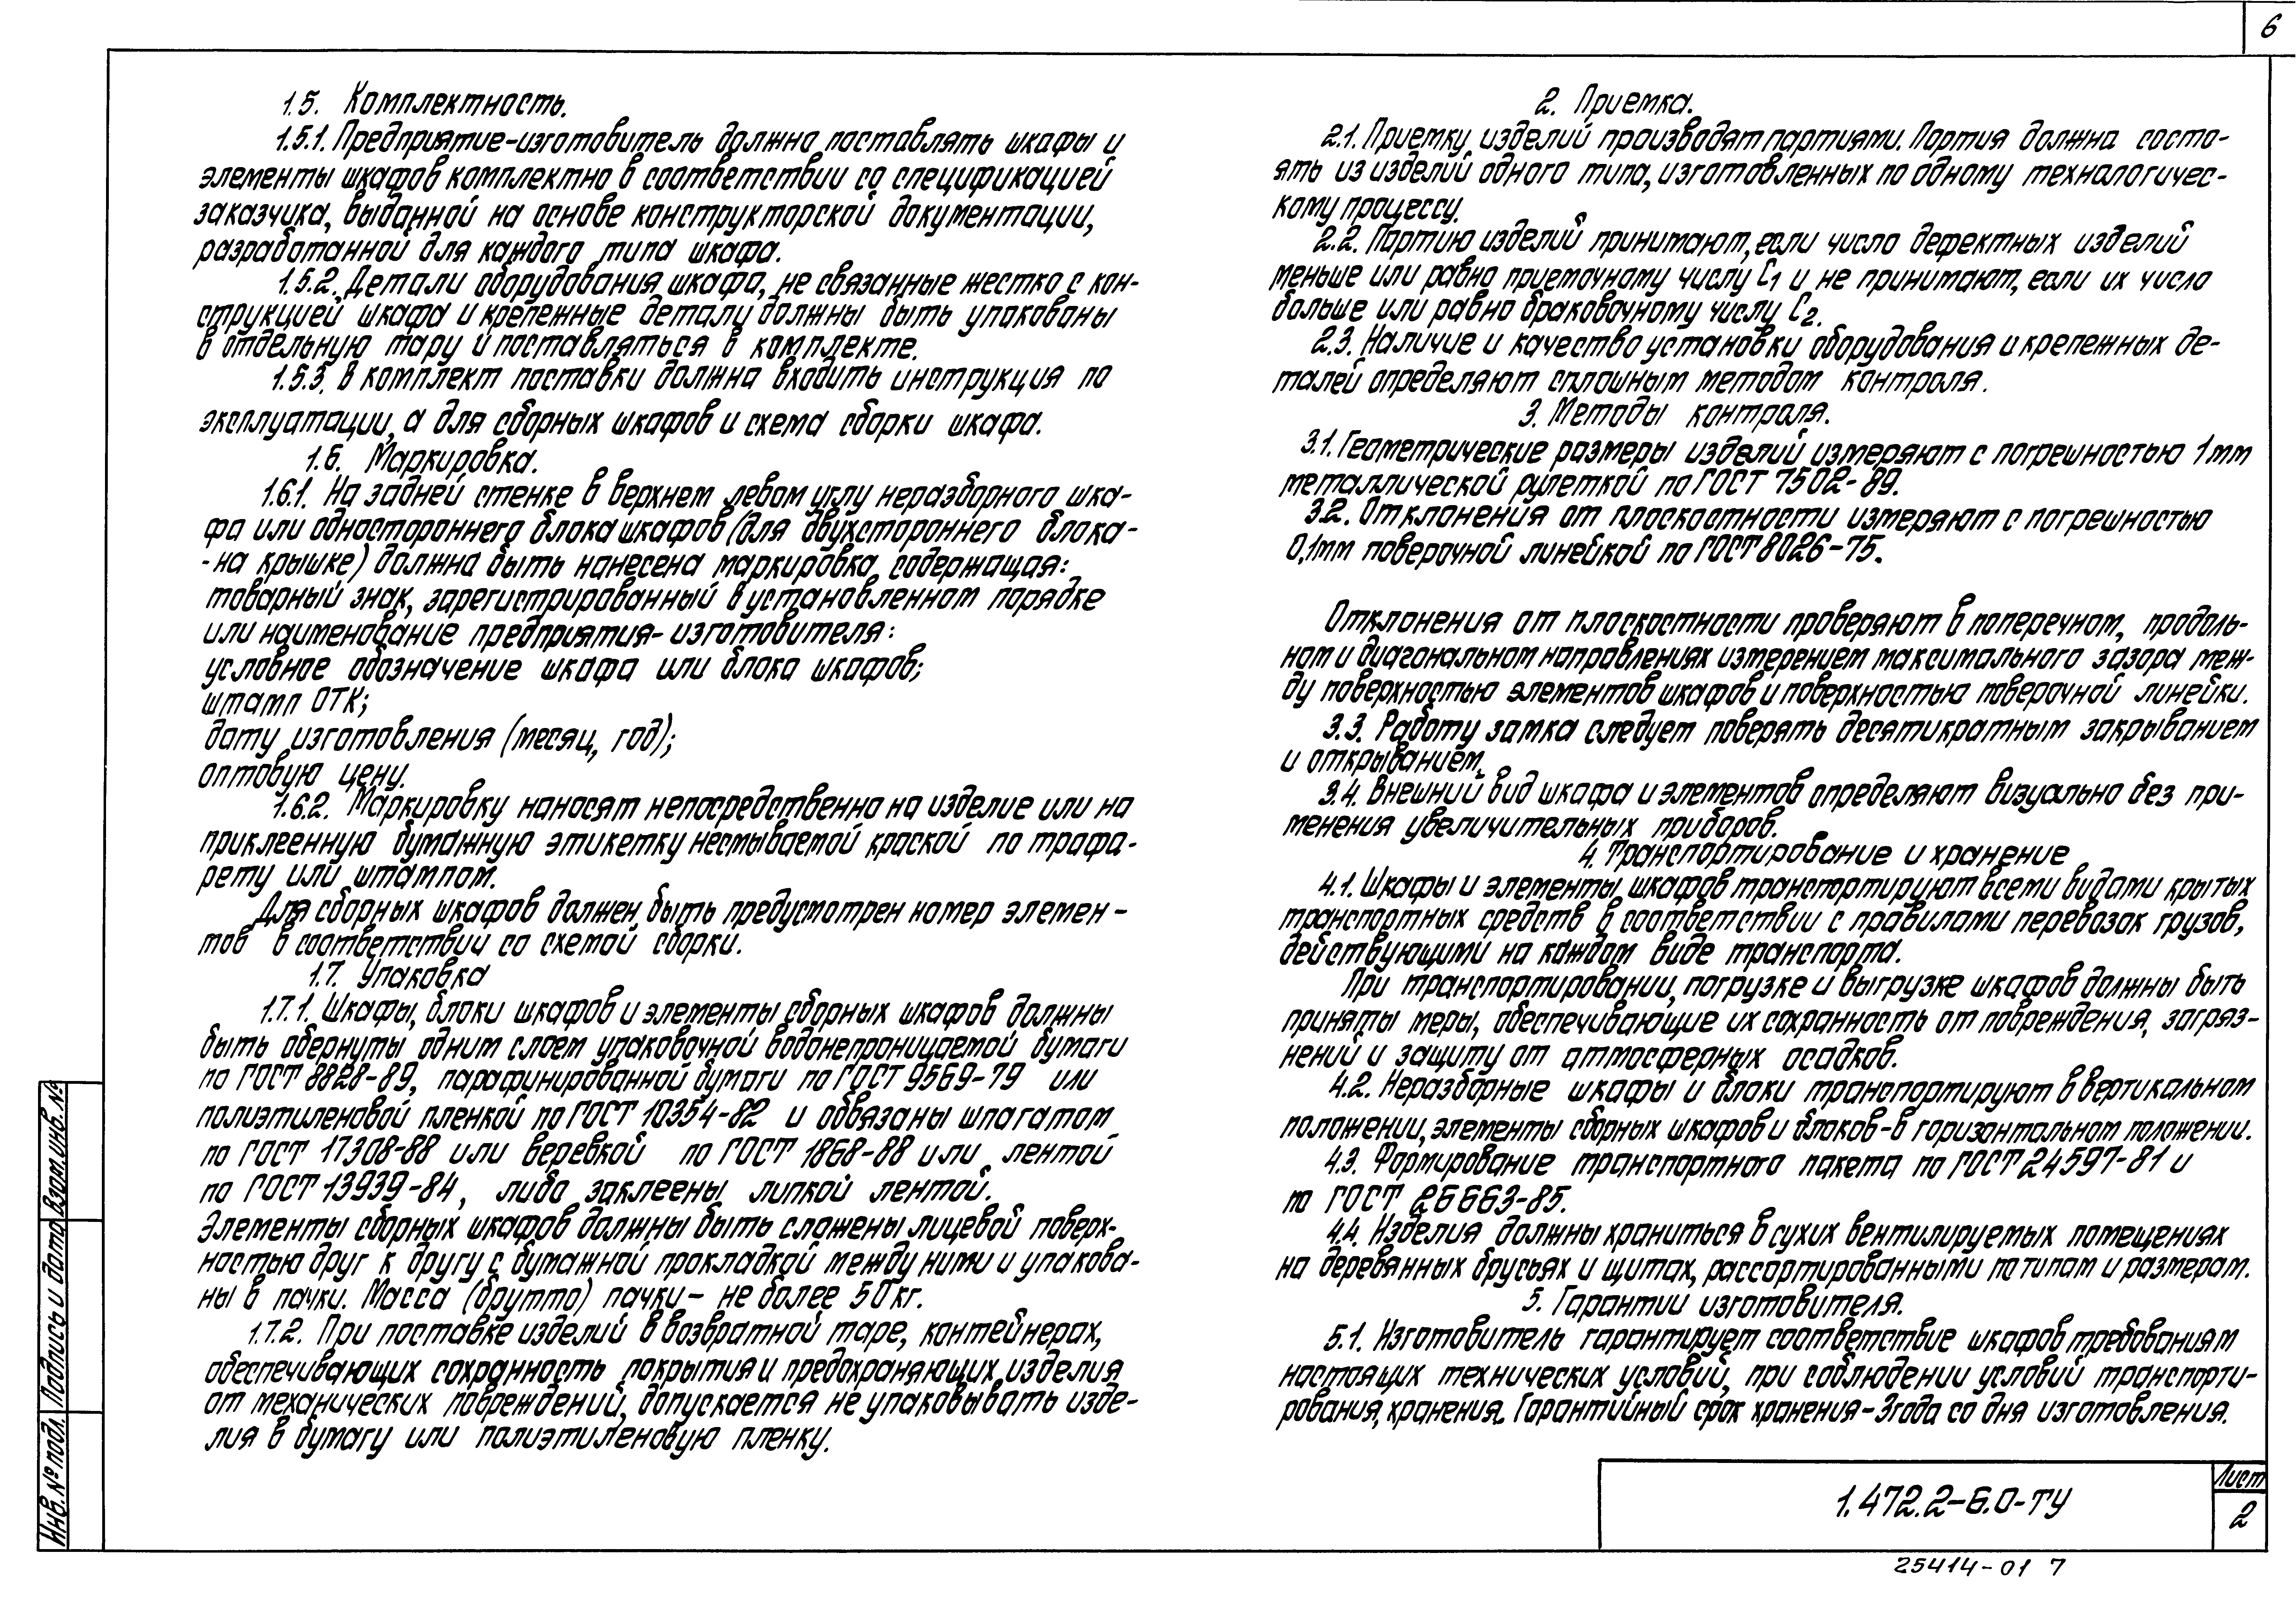 6
1.5. Комплектность.
1.5.1. Предприятие-изготовитель должно поставлять шкафы и
элементы шкафов комплектно в соответствии со спецификацией
заказчика, выданной на основе конструкторской документации,
разработанной для каждого типа шкафа.
1.5.2. Детали оборудования шкафа, не связанные жестко с кон-
струкцией шкафа и крепежные детали должны быть упакованы
в отдельную тару и поставляться в комплекте.
1.5.3. В комплект поставки должна входить инструкция по
эксплуатации, а для сборных шкафов и схема сборки шкафа.
1.6. Маркировка.
1.6.1. На задней стенке в верхнем левом углу неразборного шка-
фа или одностороннего блока шкафов (для двухстороннего блока-
-на крышке) должна быть нанесена маркировка, содержащая:
товарный знак, зарегистрированный в установленном порядке
или наименование предприятия-изготовителя:
условное обозначение шкафа или блока шкафов;
штамп ОТК;
дату изготовления (месяц, год);
оптовую цену.
1.6.2. Маркировку наносят непосредственно на изделие или на
приклеенную бумажную этикетку несмываемой краской по трафа-
рету или штампом.
Для сборных шкафов должен быть предусмотрен номер элемен-
тов в соответствии со схемой сборки.
1.7. Упаковка
1.7.1. Шкафы, блоки шкафов и элементы сборных шкафов должны
быть обернуты одним слоем упаковочной водонепроницаемой бумаги
по ГОСТ 8828-89, парафинированной бумаги по ГОСТ 9569-79 или
полиэтиленовой пленкой по ГОСТ 10354-82 и обвязаны шпагатом
по ГОСТ 17308-88 или веревкой по ГОСТ 1868-88 или лентой
по ГОСТ 13939-84, либо заклеены липкой лентой.
Элементы сборных шкафов должны быть сложены лицевой поверх-
ностью друг к другу с бумажной прокладкой между ними и упакова-
ны в пачки. Масса (брутто) пачки - не более 50 кг.
1.7.2. При поставке изделий в возвратной таре, контейнерах,
обеспечивающих сохранность покрытия и предохраняющих изделия
от механических повреждений, допускается не упаковывать изде-
лия в бумагу или полиэтиленовую пленку.
2. Приемка.
2.1. Приемку изделий производят партиями. Партия должна состо-
ять из изделий одного типа, изготовленных по одному технологичес-
кому процессу.
2.2. Партию изделий принимают, если число дефектных изделий
меньше или равно приемочному числу С1 и не принимают, если их число
больше или равно браковочному числу С2.
2.3. Наличие и качество установки оборудования и крепежных де-
талей определяют сплошным методом контроля.
3. Методы контроля.
3.1. Геометрические размеры изделий измеряют с погрешностью 1мм
металлической рулеткой по ГОСТ 7502-89.
3.2. Отклонения от плоскостности измеряют с погрешностью
0,1мм поверочной линейкой по ГОСТ 8026-75.
Отклонения от плоскостности проверяют в поперечном, продоль-
ном и диагональном направлениях измерением максимального зазора меж-
ду поверхностью элементов шкафов и поверхностью поверочной линейки.
3.3. Работу замка следует поверять десятикратным закрыванием
и открыванием.
3.4. Внешний вид шкафа и элементов определяют визуально без при-
менения увеличительных приборов.
4. Транспортирование и хранение
4.1. Шкафы и элементы шкафов транспортируют всеми видами крытых
транспортных средств в соответствии с правилами перевозок грузов,
действующими на каждом виде транспорта.
При транспортировании, погрузке и выгрузке шкафов должны быть
приняты меры, обеспечивающие их сохранность от повреждения, загряз-
нений и защиту от атмосферных осадков.
4.2. Неразборные шкафы и блоки транспортируют в вертикальном
положении, элементы сборных шкафов и блоков-в горизонтальном положении.
4.3. Формирование транспортного пакета по ГОСТ 24597-81 и
по ГОСТ 26663-85.
4.4. Изделия должны храниться в сухих вентилируемых помещениях
на деревянных брусьях и щитах, рассортированными по типам и размерам.
5. Гарантии изготовителя.
5.1. Изготовитель гарантирует соответствие шкафов требованиям
настоящих технических условий, при соблюдении условий транспорти-
рования, хранения. Гарантийный срок хранения-3года со дня изготовления.
Инв. № подл. Подпись и дата Взам. инв. №
1.472.2-6.0-ТУ
Лист
2
25414-01 7